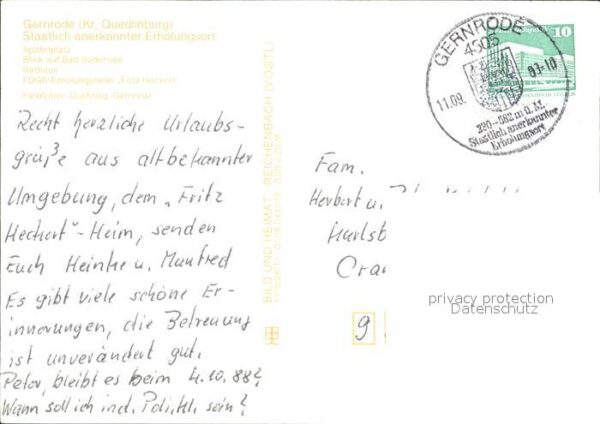 Gernrode (Kr. Quedlinburg)
Staatlich anerkannter Erholungsort
Spittelplatz
Blick auf Bad Suderode
Rathaus
FDGB-Erholungsheim „Fritz Heckert"
Farbfotos:
Gernrode
Recht herzliche Urlaubs-
grüße aus altbekannter
Umgebung, dem „Fritz
Heckert"-Heim, senden
Euch
u. Manfred
Es gibt viele schöne Er-
innerungen, die Betreuung
ist unverändert gut.
Peter, bleibt es beim 4.10.88?
Wann soll ich in d. sein?
BILD UND HEIMAT REICHENBACH (VOGTL)
GERNRODE
4505
11.09.
09-10
Staatlich anerkannter
Erholungsort
10
Fam.
Herbert u.
Karlsb
Cra
9
privacy protection
Datenschutz